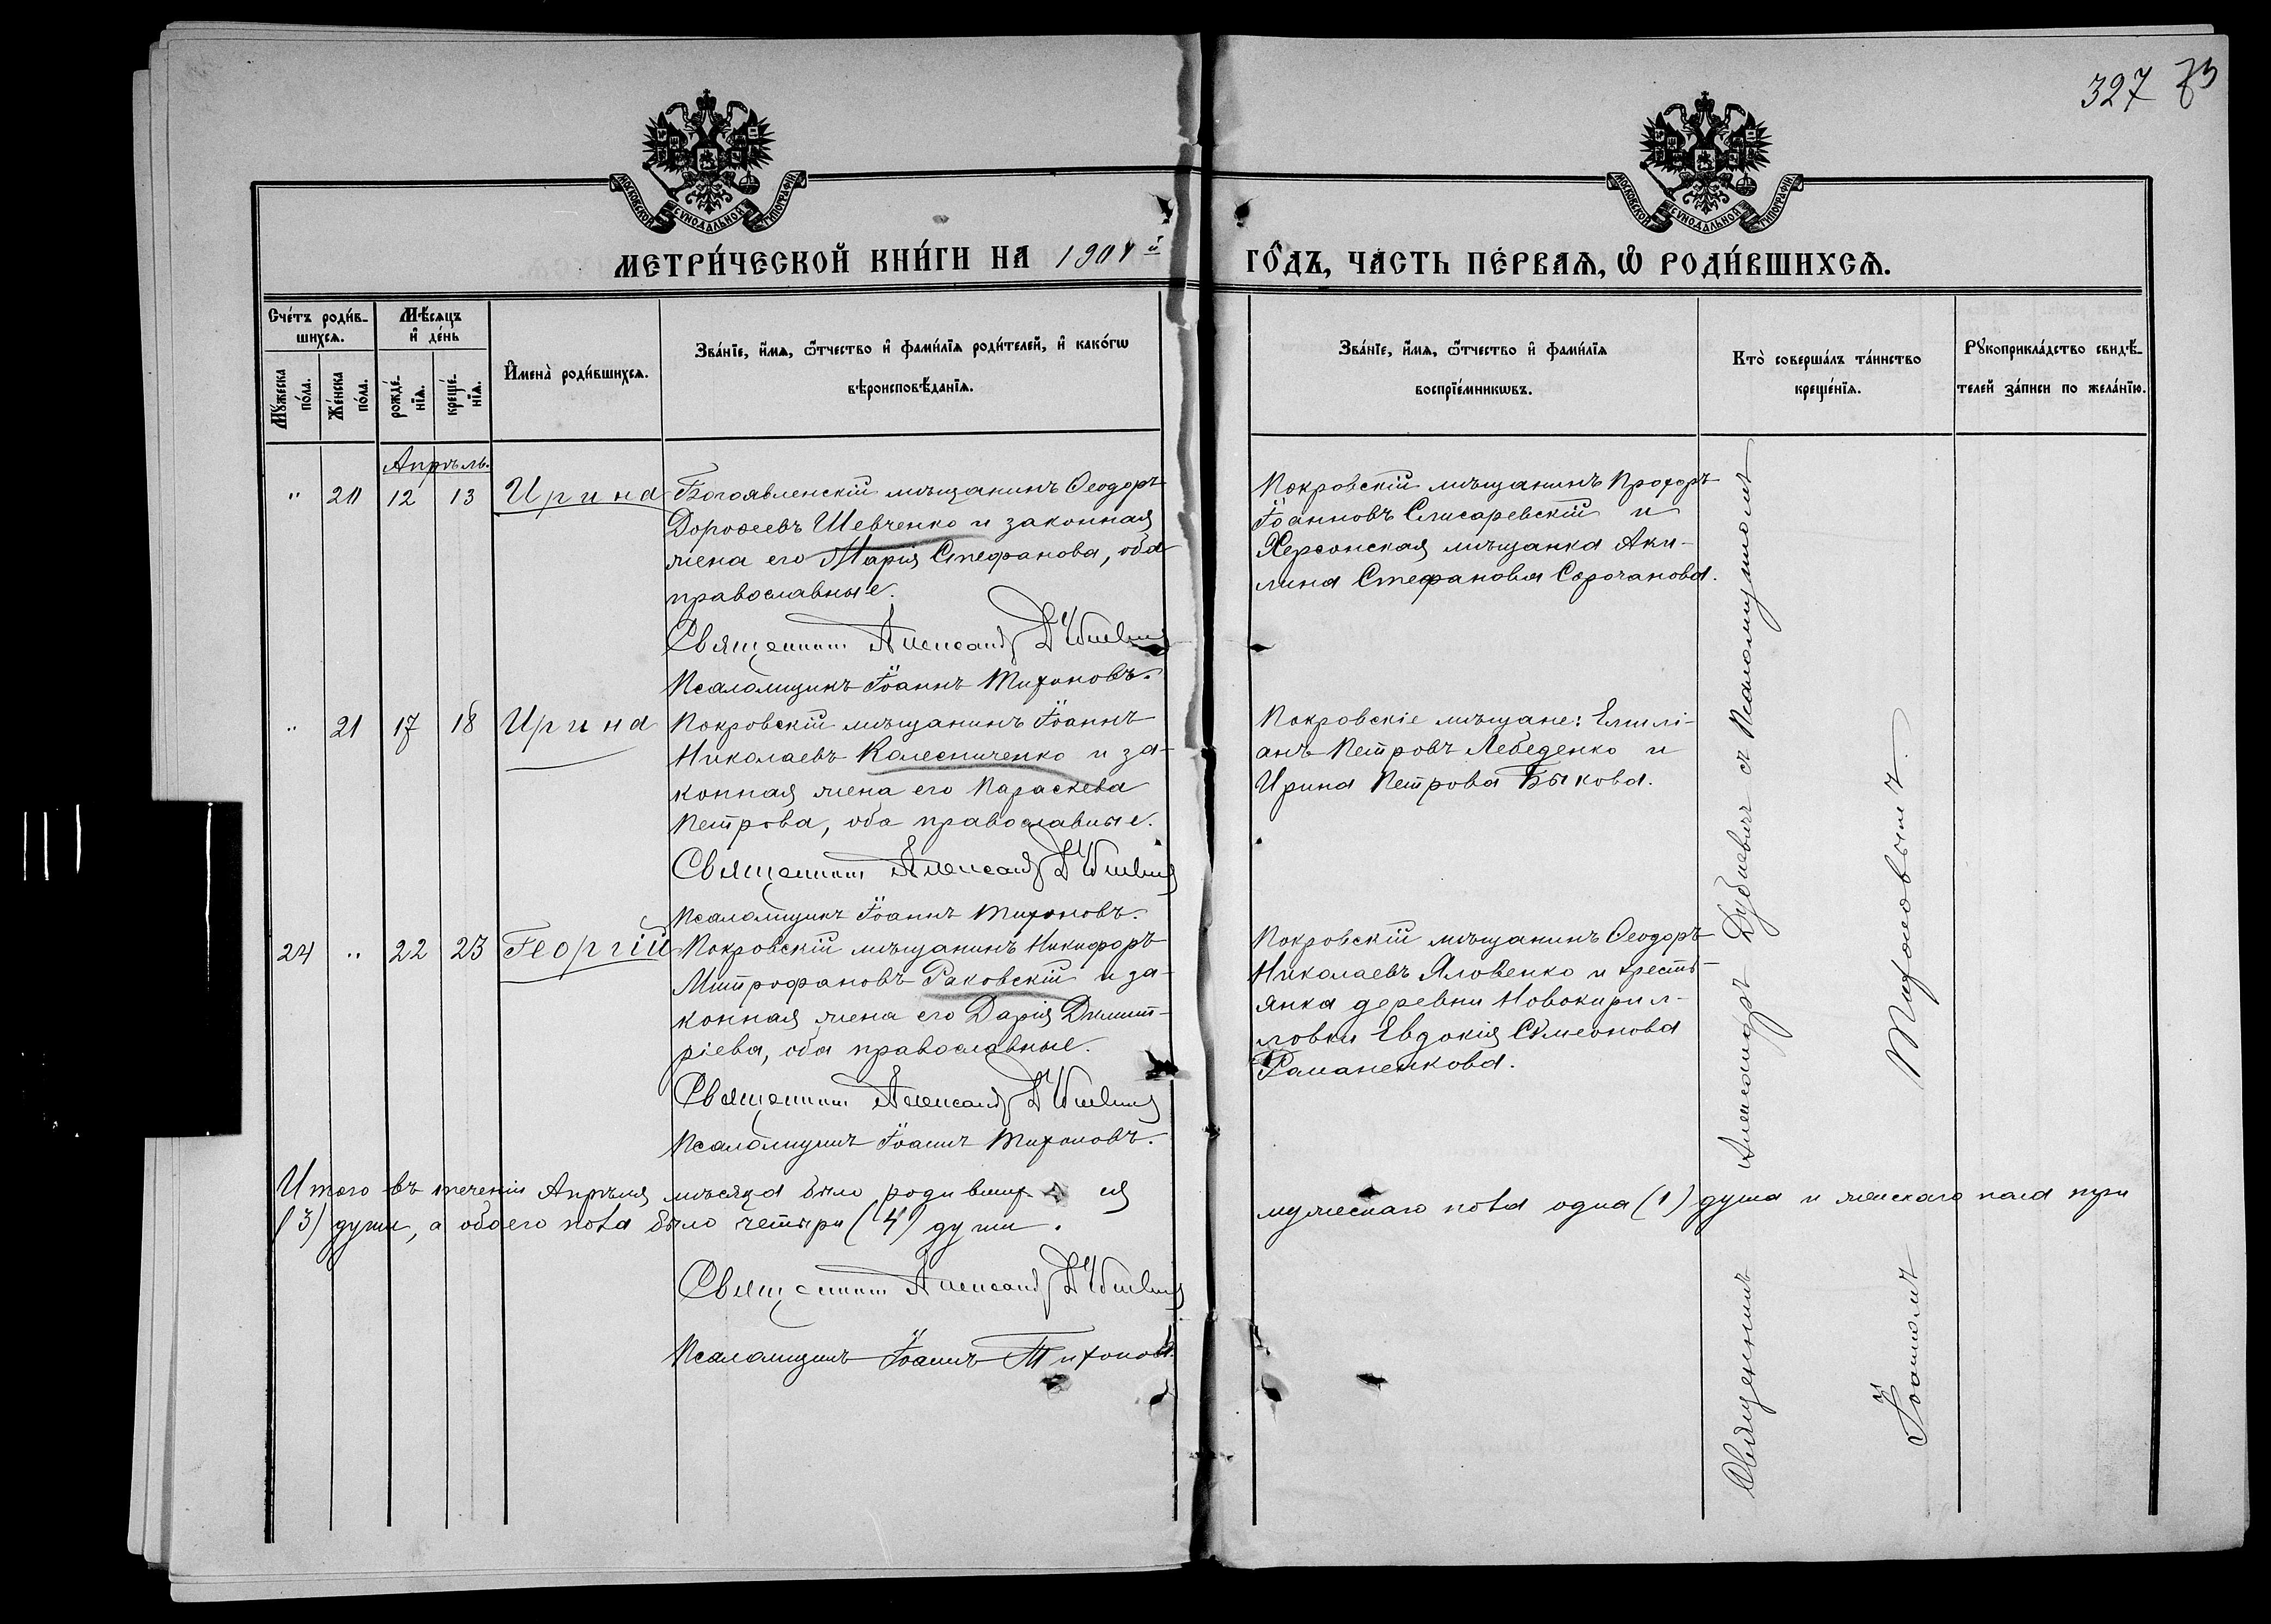 327 73
МОСКОВСКОЙ СѴНОДАЛЬНОЙ ТИПОГРАФІИ
МОСКОВСКОЙ СѴНОДАЛЬНОЙ ТИПОГРАФІИ
МЕТРИ́ЧЕСКОЙ КНИ́ГИ НА 1904 й
ГО́ДЪ, ЧА́СТЬ ПЕ́РВАѦ, Ѡ РОДИ́ВШИХСѦ.
Сче́тъ роди́в-
шихсѧ.
Мꙋ́жеска
по́ла.
Же́нска
по́ла.
Мѣ́сѧцъ
и҆ де́нь
рожде́-
нїѧ.
креще́-
нїѧ.
И҆мена̀ роди́вшихсѧ.
Зва́нїе, и҆́мѧ, ѻ҆́тчество и҆ фами́лїѧ роди́телей, и҆ како́гѡ
вѣроисповѣ́данїѧ.
Зва́нїе, и҆́мѧ, ѻ҆́тчество и҆ фами́лїѧ
воспрїе́мникѡвъ.
Кто̀ соверша́лъ та́инство
креще́нїѧ.
Рꙋкоприкла́дство свидѣ́-
телей за́писи по жела́нїю.
Апрѣль.
" 20 12 13 Ирина
Богоявленскій мѣщанинъ Ѳеодоръ
Дороѳеевъ Шевченко и законная
жена его Марія Стефанова, оба
православные.
Священник Александр
Псаломщикъ Іоаннъ Тихоновъ.
Покровскій мѣщанинъ Прохоръ
Іоанновъ Слисаревскій и
Херсонская мѣщанка Аки-
лина Стефанова Сорочанова.
" 21 17 18 Ирина
Покровскій мѣщанинъ Іоаннъ
Николаевъ Колесниченко и за-
конная жена его Параскева
Петрова, оба православные.
Священник Александр
Псаломщикъ Іоаннъ Тихоновъ.
Покровскіе мѣщане: Емилі-
анъ Петровъ Лебеденко и
Ирина Петрова Быкова.
24 " 22 23 Георгій
Покровскій мѣщанинъ Никифоръ
Митрофановъ Раковскій и за-
конная жена его Дарія Димит-
ріева, оба православные.
Священник Александр
Псаломщикъ Іоаннъ Тихоновъ.
Покровскій мѣщанинъ Ѳеодоръ
Николаевъ Яловенко и кресть-
янка деревни Новокирил-
ловки Евдокія Сѵмеонова
Романенкова.
Священникъ Александръ съ Псаломщикомъ
Іоанномъ Тихоновымъ.
Итого въ теченіи Апрѣля мѣсяца было родивших ся мужескаго пола одна (1) душа и женскаго пола три
(3) души, а обоего пола было четыри (4) души.
Священник Александр
Псаломщикъ Іоаннъ Тихоновъ.